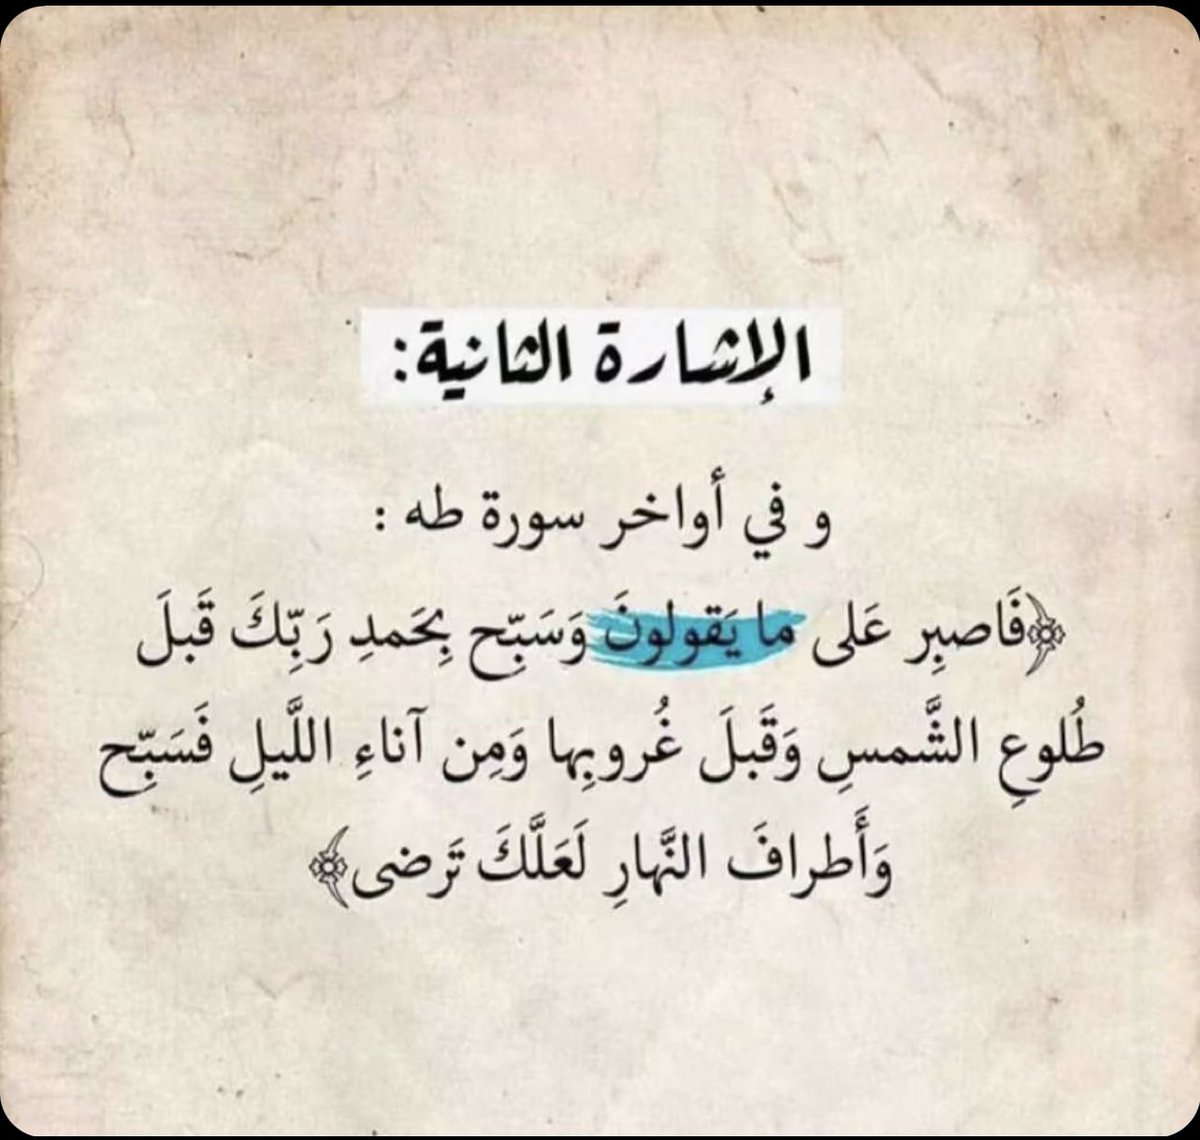 الإشارة الثانية:
و في أواخر سورة طه :
﴿فَاصبِر عَلى ما يَقولونَ وَسَبِّح بِحَمدِ رَبِّكَ قَبلَ
طُلوعِ الشَّمسِ وَقَبلَ غُروبِها وَمِن آناءِ اللَّيلِ فَسَبِّح
وَأَطرافَ النَّهارِ لَعَلَّكَ تَرضى﴾